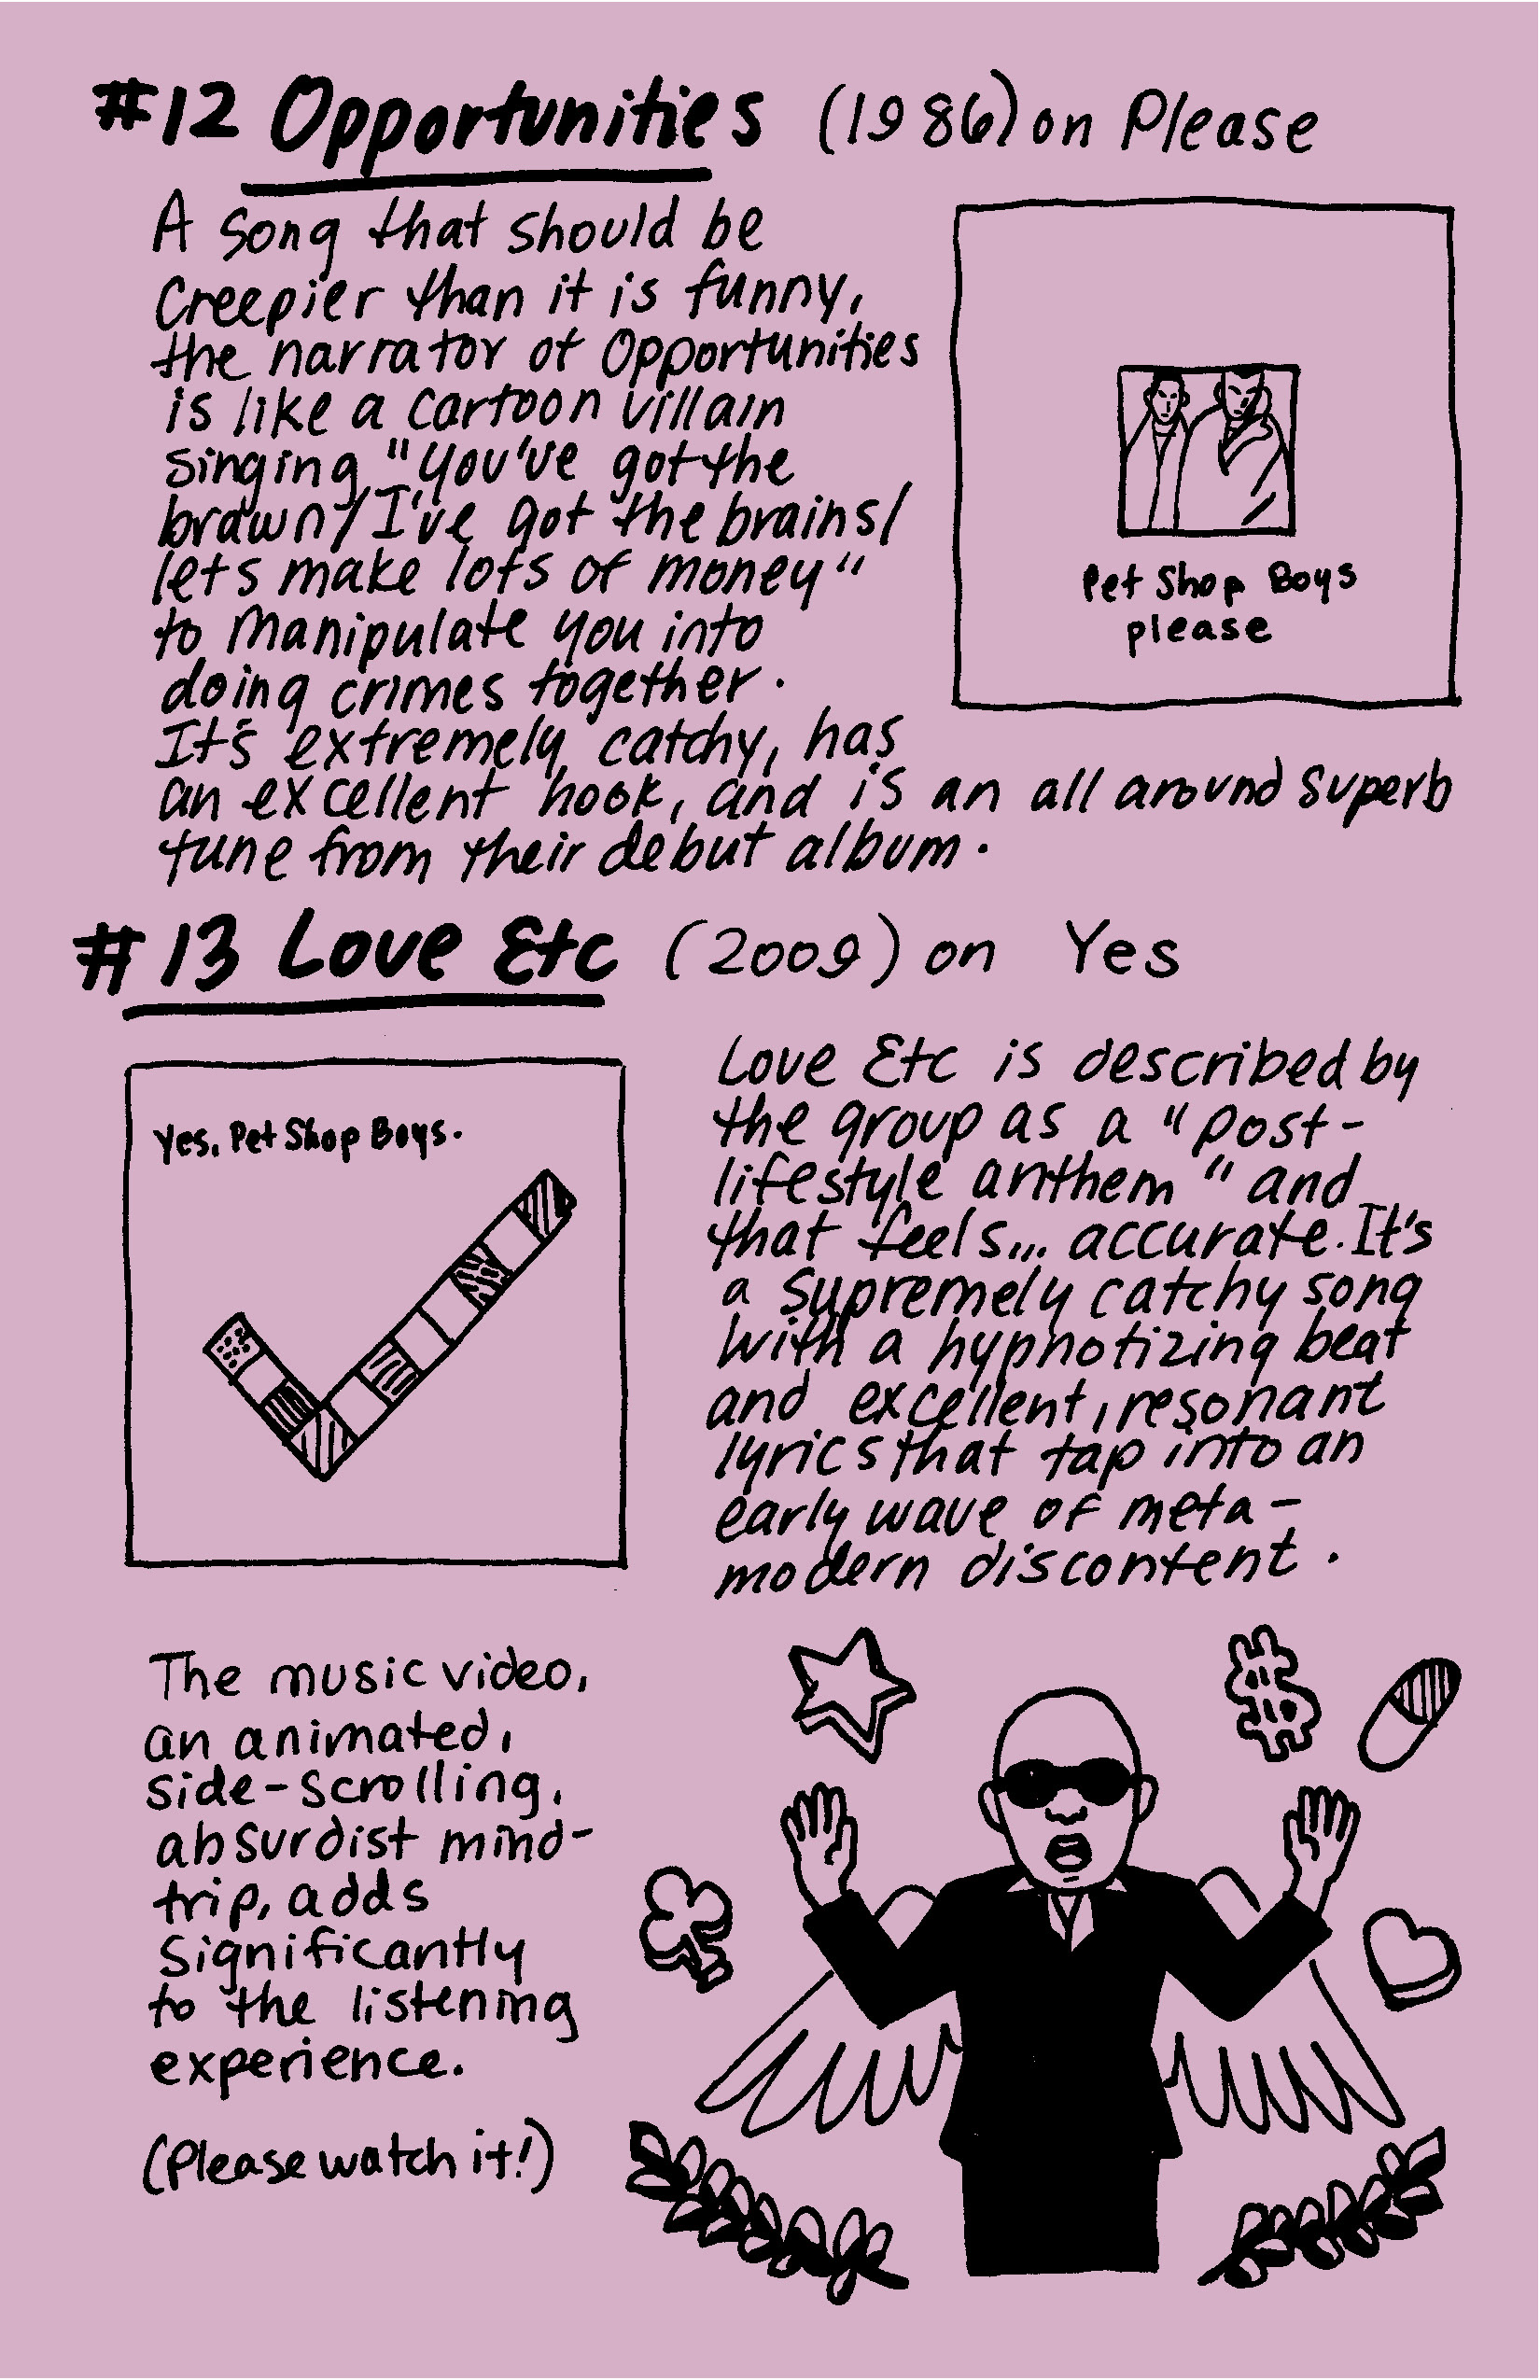 #12 Opportunities (1986) on Please
A song that should be
creepier than it is funny,
the narrator of Opportunities
is like a cartoon villain
singing "you've got the
brawn/I've got the brains/
lets make lots of money"
to manipulate you into
doing crimes together.
It's extremely catchy, has
an excellent hook, and is an all around superb
tune from their debut album.
Pet Shop Boys
please
#13 Love Etc (2009) on Yes
Yes, Pet Shop Boys.
Love Etc is described by
the group as a "post-
lifestyle anthem" and
that feels... accurate. It's
a supremely catchy song
with a hypnotizing beat
and excellent, resonant
lyrics that tap into an
early wave of meta-
modern discontent.
The music video,
an animated,
side-scrolling,
absurdist mind-
trip, adds
significantly
to the listening
experience.
(Please watch it!)